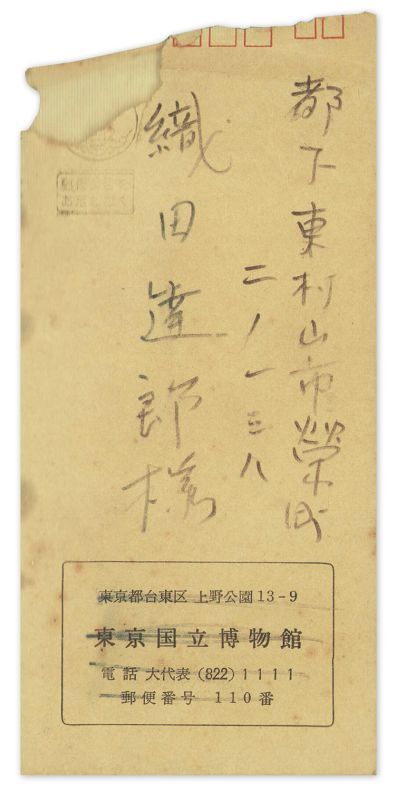 都下東村山市榮町
二ノ一三八
織田達郎様
東京都台東区 上野公園13-9
東京国立博物館
電話 大代表 (822) 1111
郵便番号 110番